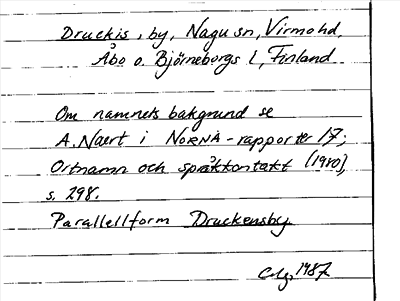 Druckis, by, Nagu sn, Virmo hd,
Åbo o. Björneborgs l, Finland
Om namnets bakgrund se
A. Naert i NORNA-rapporter 17,
Ortnamn och språkkontakt (1980),
s. 298.
Parallellform Druckensby.
1987